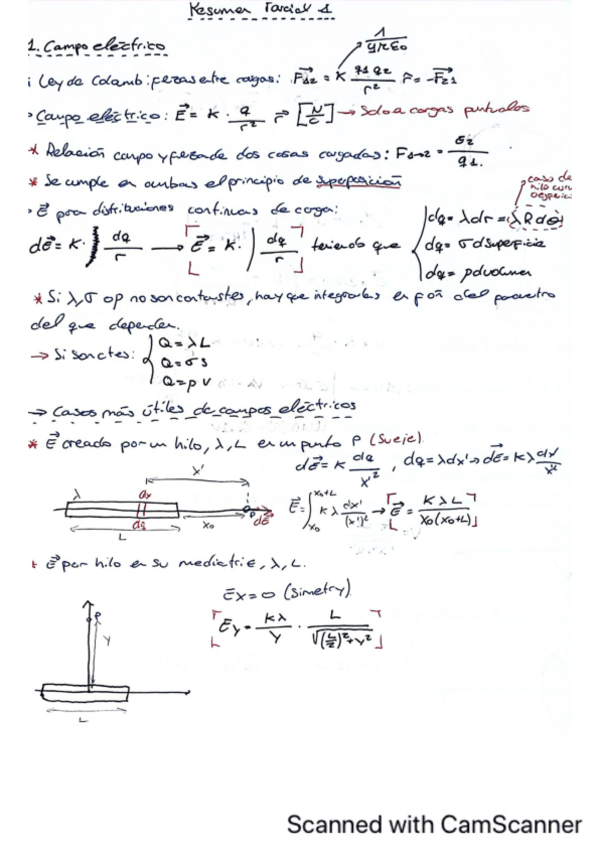 Resumen Parcial 1
1. Campo eléctrico
1/4πε₀
¡ Ley de Colomb: fuerzas entre cargas: F₁₂ = K q₁ q₂/r² r̂ = -F₂₁
> Campo eléctrico: E = K · q/r² r [N/C] → Solo a cargas puntuales
* Relación campo y fuerza de dos cosas cargadas: F₁→₂ =
* Se cumple en ambas el principio de superposición
caso de hilo con
> E para distribuciones continuas de carga:
dE = K · ∫ dq/r → [E = K · ∫ dq/r] teniendo que { dq = λdr = (λRdθ)
dq = σ dSuperficie
dq = ρdvolumen
* Si λ, σ o ρ no son constantes, hay que integrarlas en fon del parametro
del que dependen.
→ Si son ctes: { Q = λL
Q = σ S
Q = ρ V
→ Casos más útiles de campos eléctricos
* E creado por un hilo, λ, L en un punto P (Su eje)
dE = K dq/x'², dq = λdx' → dE = Kλ dx'/x'²
x'
λ dx
dq x₀ P dE
L
E = ∫ x₀ x₀+L Kλ dx'/(x')² → [E = KλL/X₀(x₀+L)]
* E por hilo en su mediatriz, λ, L.
Ex = 0 (Simetry)
[Ey = Kλ/Y · L/√((L/2)²+Y²)]
P
Y
L
Scanned with CamScanner